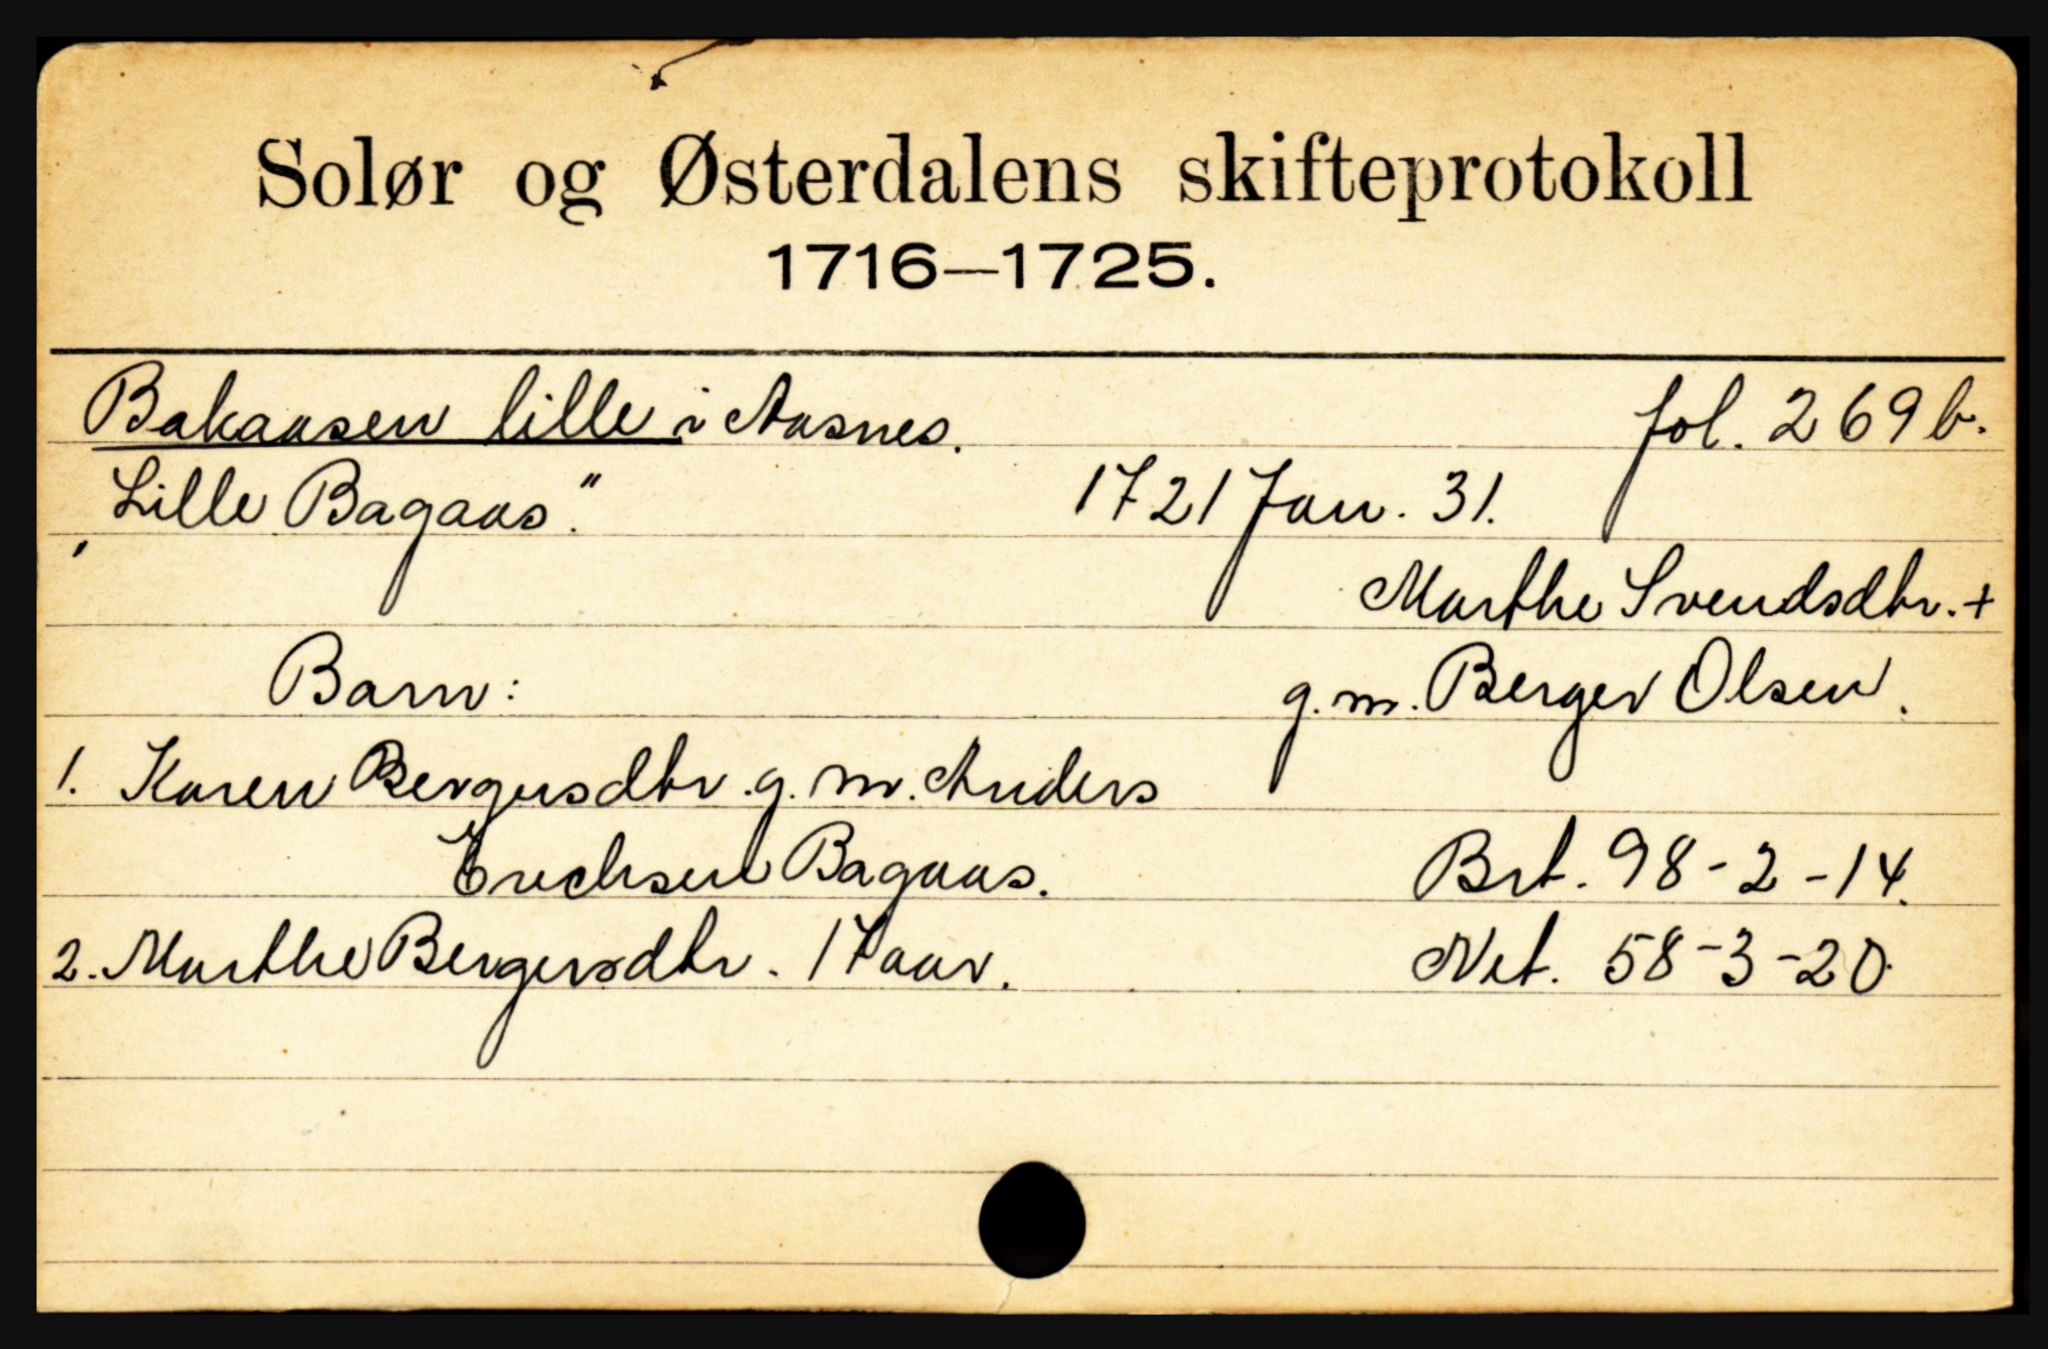 Solør og Østerdalens skifteprotokoll
1716—1725.
Bakaasen lille i Aasnes. fol. 269 b.
"Lille Bagaas." 1721 Jan. 31.
Marthe Svendsdtr. +
Barn: g. m. Berger Olsen.
1. Karen Bergersdtr. g. m. Anders
Erichsen Bagaas. Brt. 98-2-14.
2. Marthe Bergersdtr. 17 aar. Net. 58-3-20.